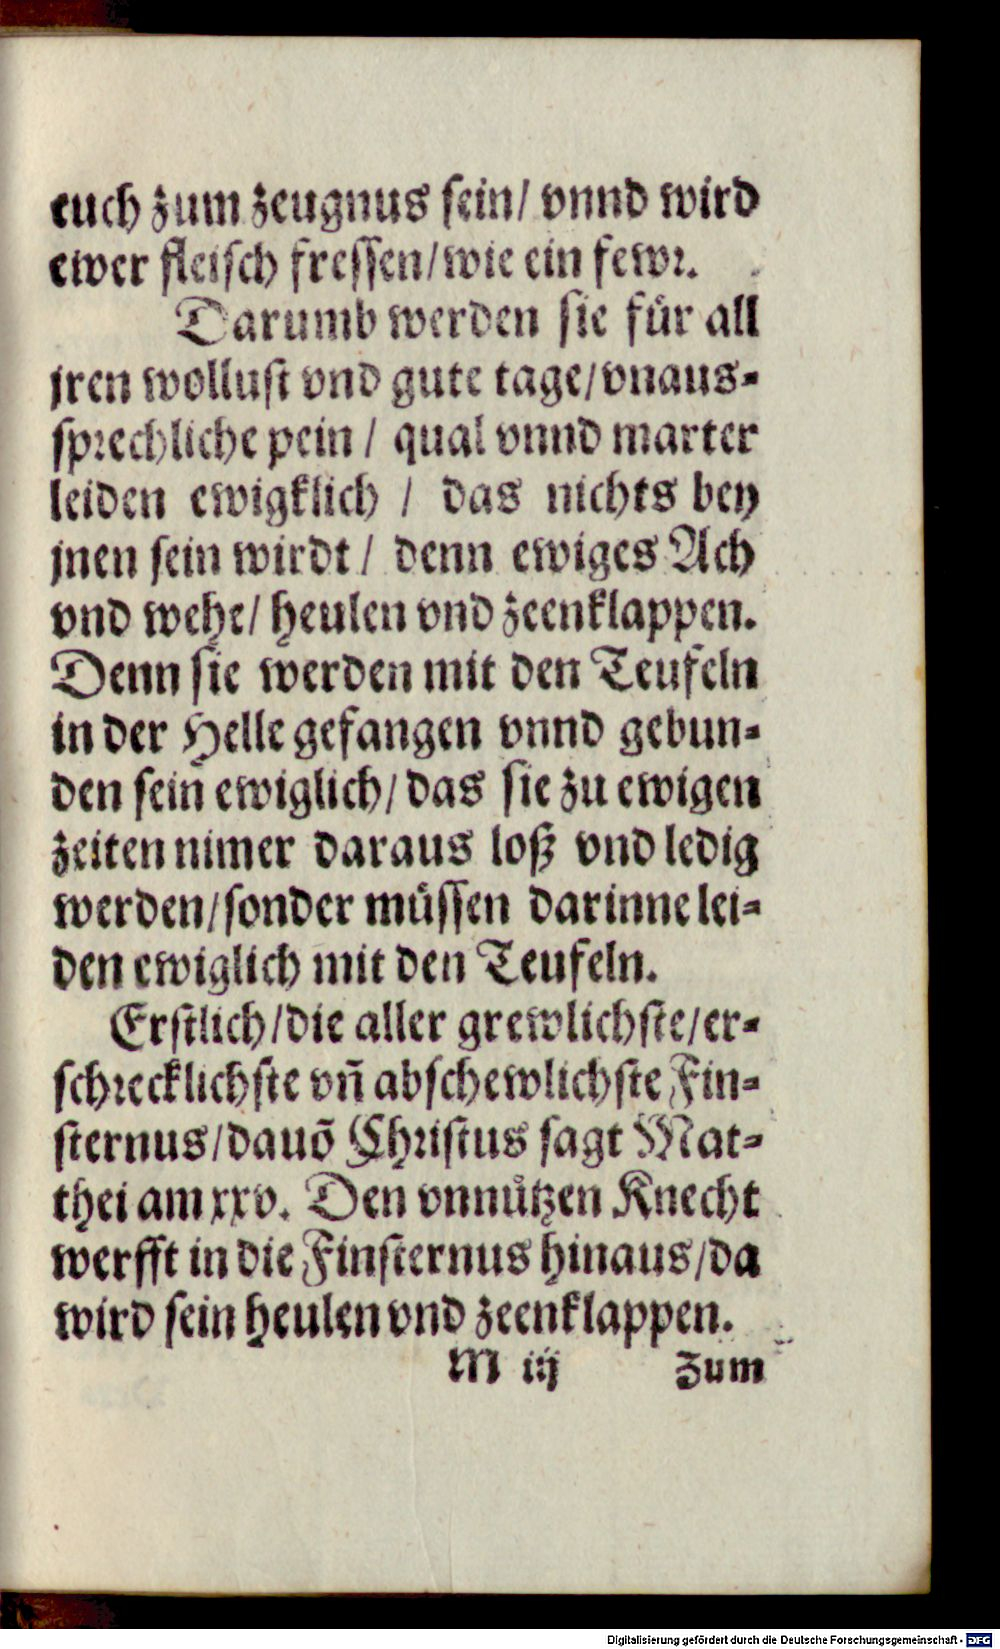 euch zum zeugnus sein/ vnnd wird
ewer fleisch fressen/wie ein fewr.
Darumb werden sie für all
jren wollust vnd gute tage/vnaus-
sprechliche pein / qual vnnd marter
leiden ewigklich / das nichts bey
jnen sein wirdt / denn ewiges Ach
vnd wehe/ heulen vnd zeenklappen.
Denn sie werden mit den Teufeln
in der Helle gefangen vnnd gebun-
den sein ewiglich/das sie zu ewigen
zeiten nimer daraus loß vnd ledig
werden/sonder müssen darinne lei-
den ewiglich mit den Teufeln.
Erstlich/die aller grewlichste/er-
schrecklichste vñ abschewlichste Fin-
sternus/dauõ Christus sagt Mat-
thei am xxv. Den vnnützen Knecht
werfft in die Finsternus hinaus/da
wird sein heulen vnd zeenklappen.
M iij Zum
Digitalisierung gefördert durch die Deutsche Forschungsgemeinschaft - DFG